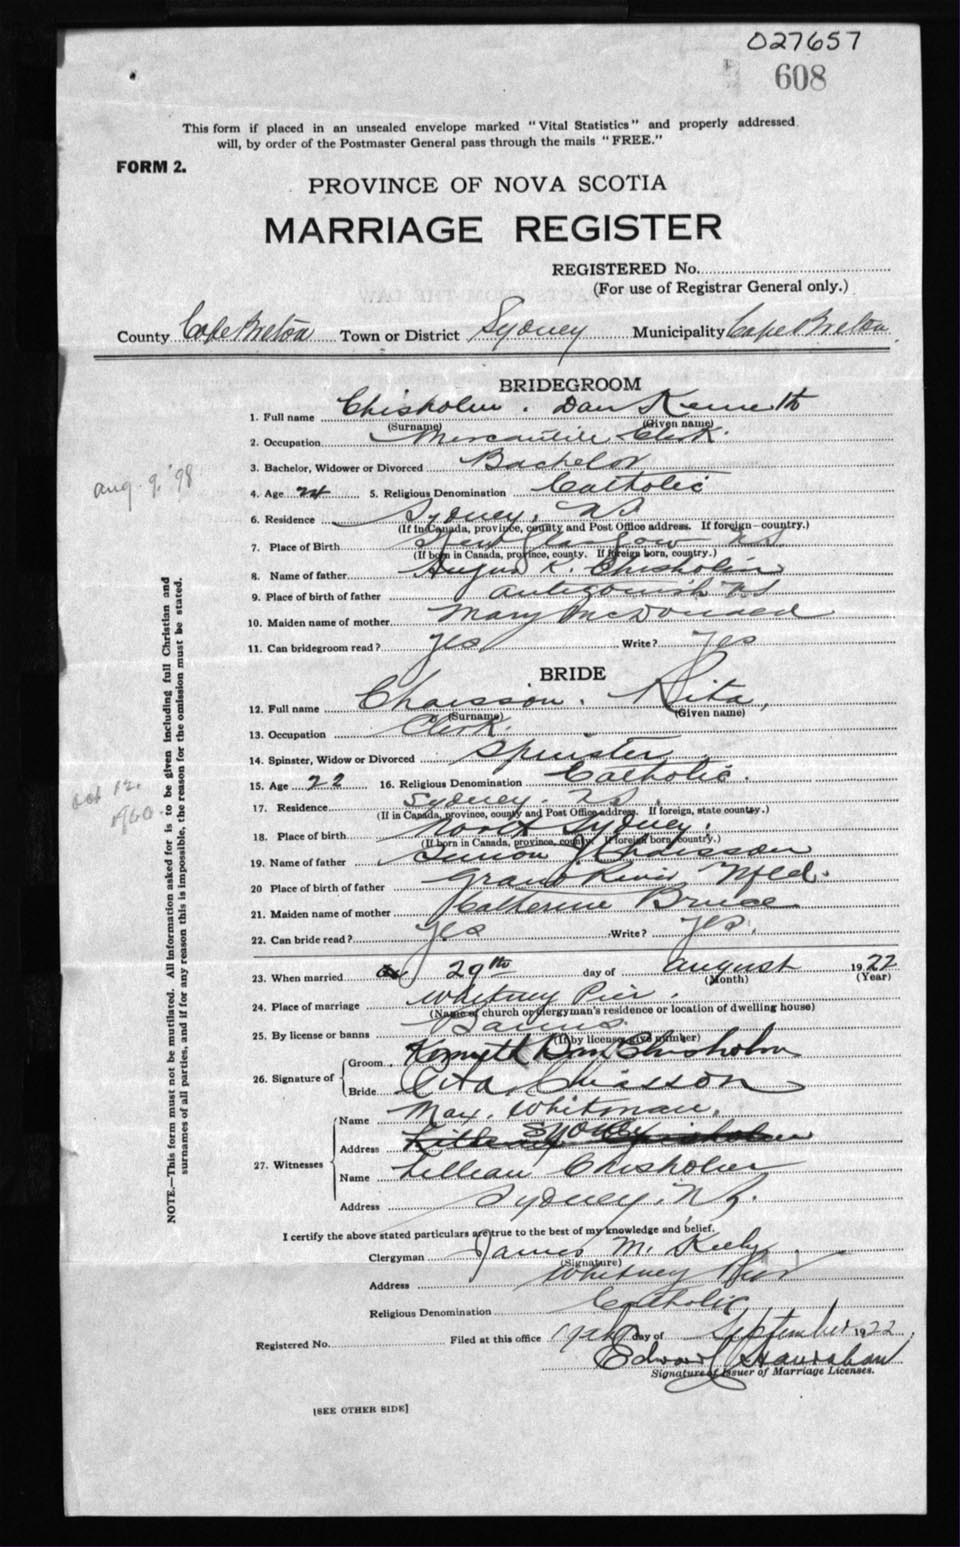 027657
608
This form if placed in an unsealed envelope marked "Vital Statistics" and properly addressed
will, by order of the Postmaster General pass through the mails "FREE."
FORM 2.
PROVINCE OF NOVA SCOTIA
MARRIAGE REGISTER
REGISTERED No.
(For use of Registrar General only.)
County Cape Breton Town or District Sydney Municipality Cape Breton
BRIDEGROOM
1. Full name Chisholm. Dan Kenneth
(Surname) (Given name)
2. Occupation Mercantile Clerk.
3. Bachelor, Widower or Divorced Bachelor
aug. 9, '98
4. Age 24 5. Religious Denomination Catholic
6. Residence Sydney, N.S.
(If in Canada, province, county and Post Office address. If foreign—country.)
7. Place of Birth New Glasgow N.S.
(If born in Canada, province, county. If foreign born, country.)
8. Name of father Angus K. Chisholm
9. Place of birth of father Antigonish N.S.
10. Maiden name of mother Mary McDonald
11. Can bridegroom read? Yes Write? Yes
BRIDE
12. Full name Chaisson. Rita,
(Surname) (Given name)
13. Occupation Clerk.
14. Spinster, Widow or Divorced Spinster
15. Age 22 16. Religious Denomination Catholic.
Oct 12,
17. Residence Sydney. N.S.
(If in Canada, province, county and Post Office address. If foreign, state country.)
18. Place of birth North Sydney.
(If born in Canada, province, county. If foreign born, country.)
19. Name of father Simon J. Chaisson
20 Place of birth of father Grand River Nfld.
21. Maiden name of mother Catherine Bruce
22. Can bride read? Yes Write? Yes.
23. When married 29th day of August 1922
(Month) (Year)
24. Place of marriage Whitney Pier.
(Name of church or clergyman's residence or location of dwelling house)
25. By license or banns Banns
(If by license give number)
26. Signature of Groom Kennyth Dan Chisholm
Bride Rita Chiasson
27. Witnesses Name Max. Whitman,
Address Sydney
Name Lillian Chisholm
Address Sydney, N.S.
I certify the above stated particulars are true to the best of my knowledge and belief.
Clergyman James M. Kiely
(Signature)
Address Whitney Pier
Religious Denomination Catholic
Registered No. Filed at this office day of September 1922.
Edward
Signature of Issuer of Marriage Licenses.
[SEE OTHER SIDE]
NOTE.—This form must not be mutilated. All information asked for is to be given including full Christian and
surnames of all parties, and if for any reason this is impossible, the reason for the omission must be stated.